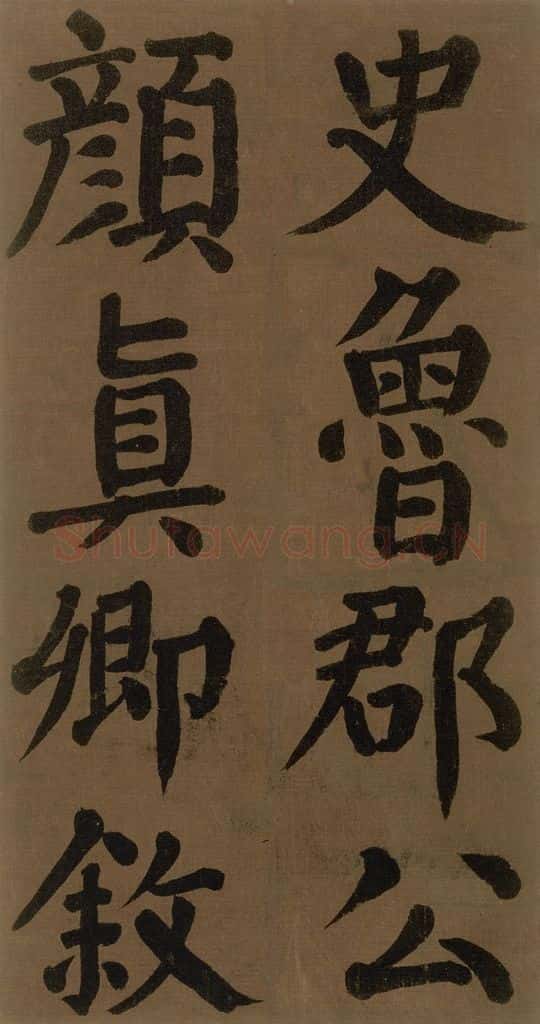 史魯郡公
顏眞卿敘
Shufawang.CN